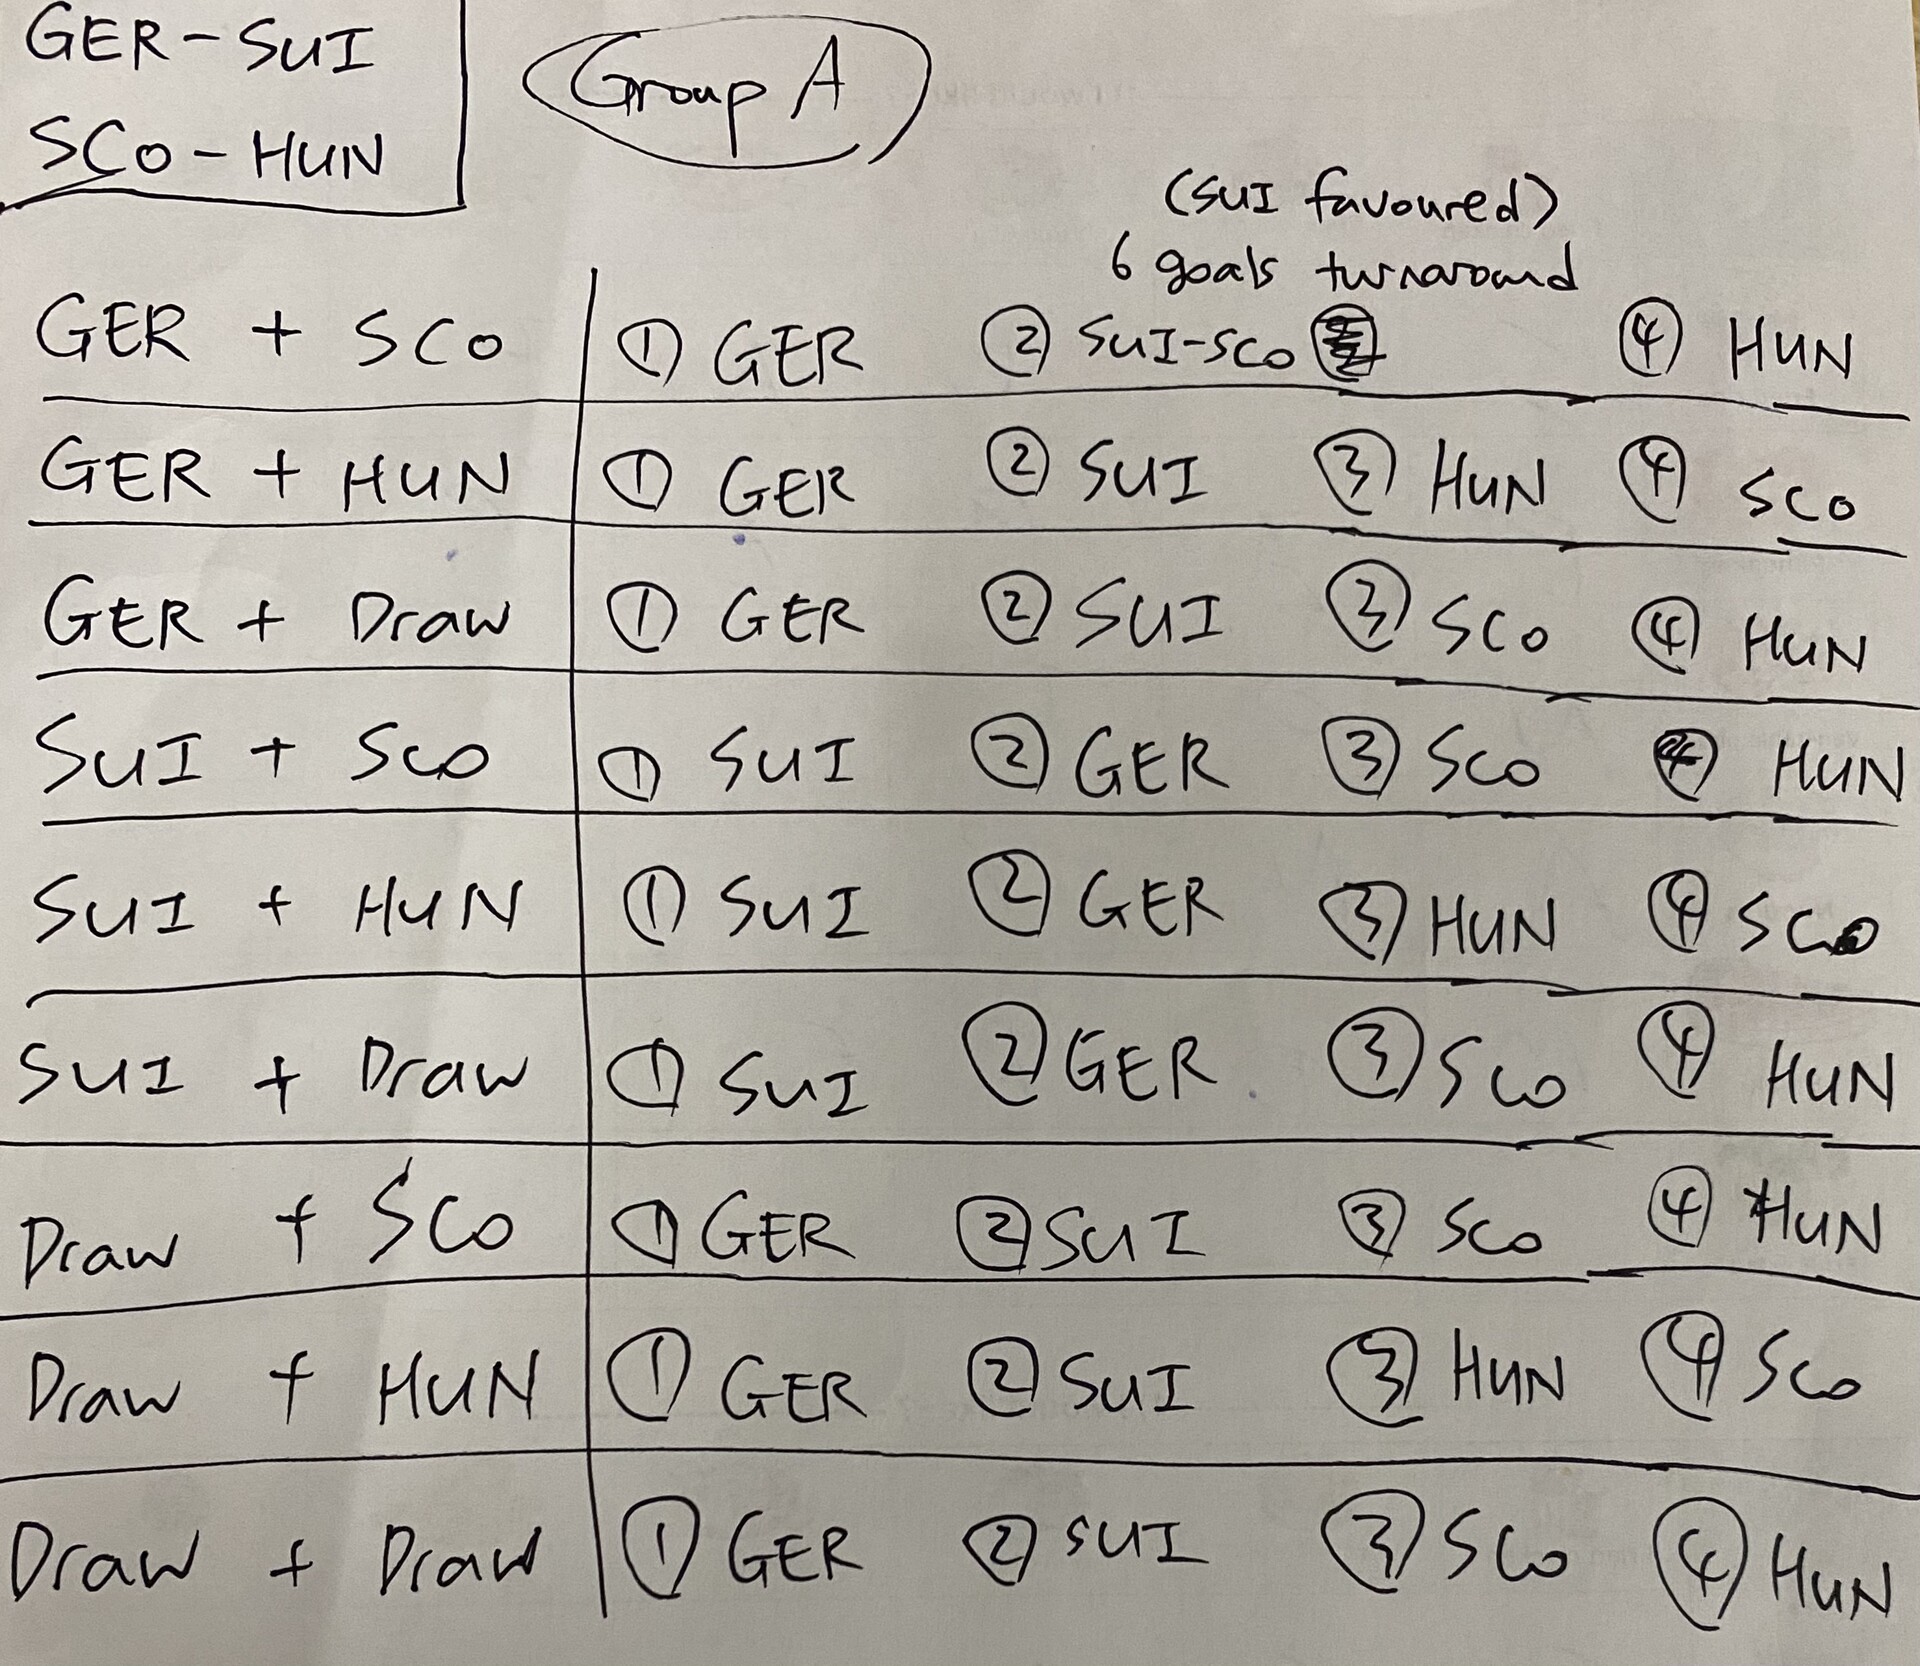 GER - SUI
SCO - HUN
Group A
(SUI favoured)
6 goals turnaround
GER + SCO ① GER ② SUI-SCO ④ HUN
GER + HUN ① GER ② SUI ③ HUN ④ SCO
GER + Draw ① GER ② SUI ③ SCO ④ HUN
SUI + SCO ① SUI ② GER ③ SCO ④ HUN
SUI + HUN ① SUI ② GER ③ HUN ④ SCO
SUI + Draw ① SUI ② GER ③ SCO ④ HUN
Draw + SCO ① GER ② SUI ③ SCO ④ HUN
Draw + HUN ① GER ② SUI ③ HUN ④ SCO
Draw + Draw ① GER ② SUI ③ SCO ④ HUN